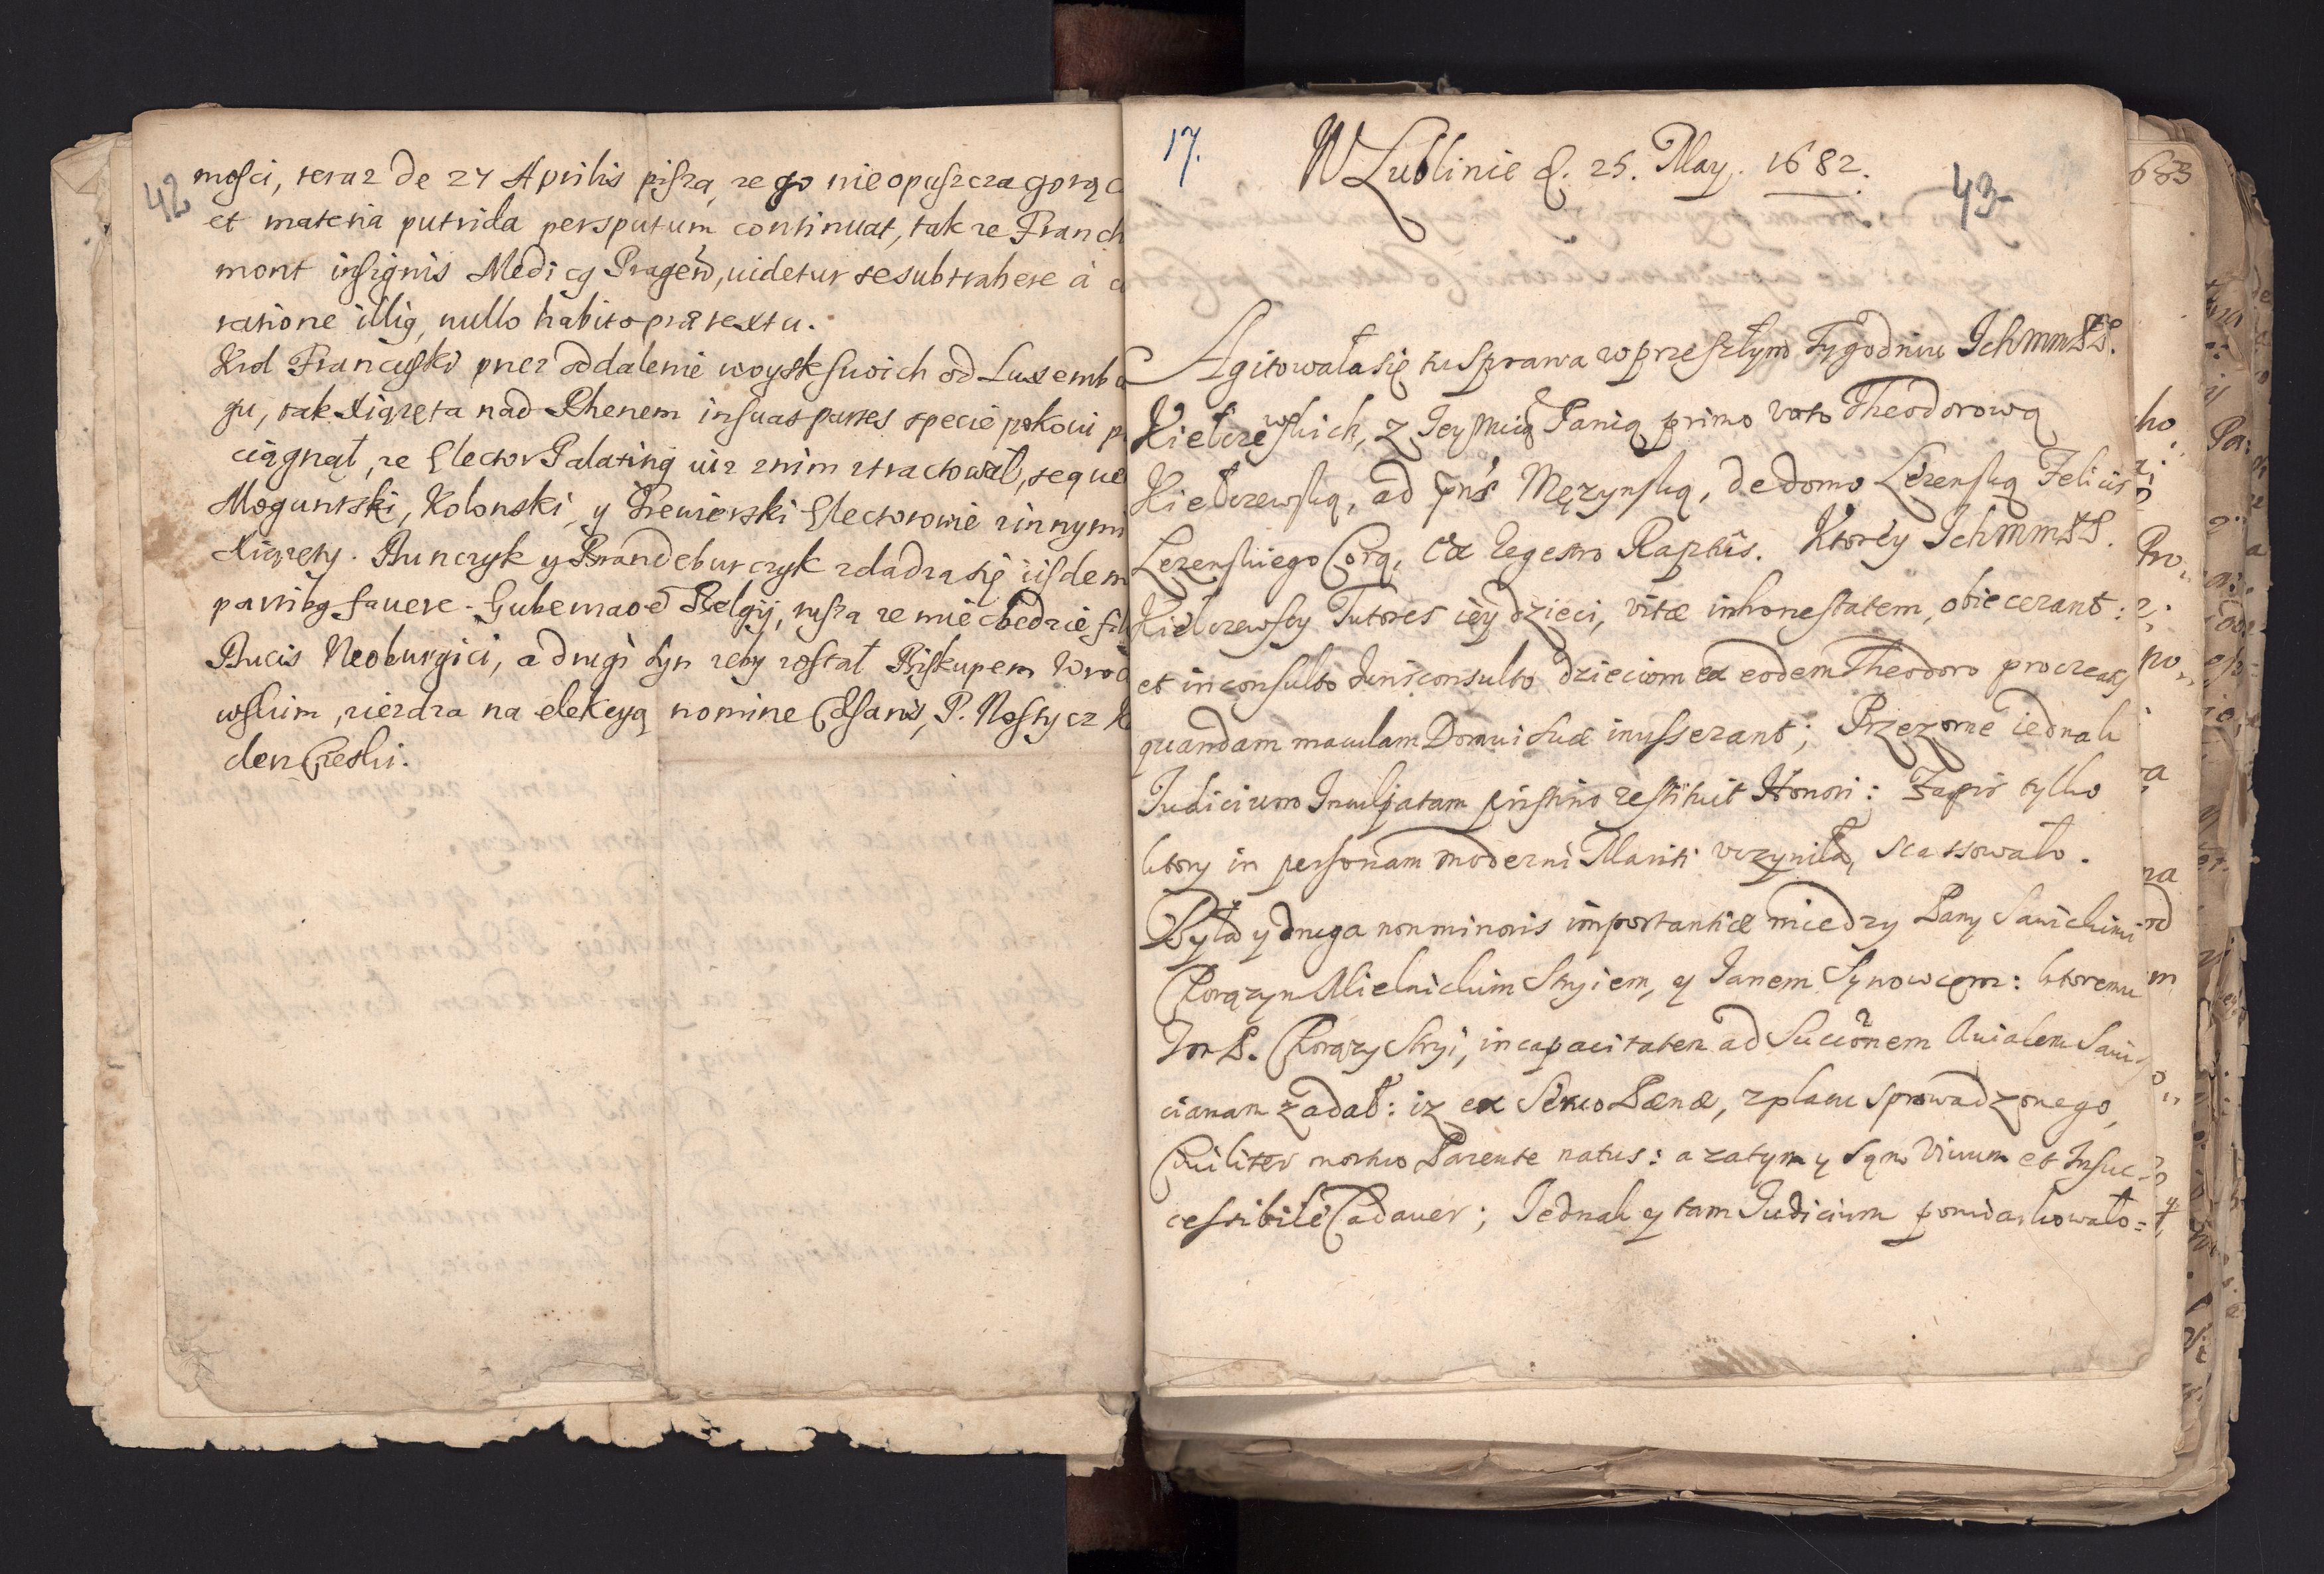 42
mości, teraz de 27 Aprilis piszą, ze go nie opuszcza gorąc
et materia putrida persputum continuat, tak ze Franch
mont insignis Medicq Pragen, uidetur se subtrahere à cu
ratione illiq, nullo habito prætextu.
Krol Francuski przez oddalenie woysk swoich od Luxembu
gu, tak Xiązęta nad Rhenem in suas partes specie pokoiu p
ciągnął, ze Elector Palatinq iuz znim ztractował, seque
Moguntski, Kolonski, y Trewierski Electorowie zinnymi
Xiązęty. Dunczyk y Brandeburczyk zdadzą się iisdem
partibq favere. Gubernaoe Belgij, tusza ze miec będzie fil
Ducis Neoburgici, a drugi syn zeby został Biskupem Wroc
wskim, ziezdza na elekcyą nomine Cæsaris, P. Nostycz K
clerz Czeski.
17.
W Lublinie d. 25. May. 1682.
43
Agitowała się tu Sprawa w przeszłym Tygodniu IchMmPP.
Kiełczewskich, z Jey Mcią Panią primo voto Theodorową
Kiełczewską, ad pns Męzynską, de domo Lezenską Felicis
Lezenskiego Corą, ex Regestro Raptus. Ktorey IchMmPP.
Kiełczewscy Tutores iey dzieci, vitæ inhonestatem, obiecerant:
et inconsulto Iurisconsulto dzieciom ex eodem Theodoro procreatq
quandam maculam Domui suæ inusserant; Przezorne iednak
Iudicium Inculpatam pristino restituit Honori: Zapis tylko
ktory in personam moderni Mariti vczyniła, scassowało.
Była y druga non minoris importantiæ miedzy Pany Sawickimi
Chorązym Mielnickim Stryiem, y Janem Synowcem: ktoremu
Im P. Chorązy Stryi, incapacitatem ad Succonem Auialem Sawi-
cianam zadał: iz ex Seruo Pænæ, z placu sprowadzonego,
Ciuiliter mortuo Parente natus: a zatym y sam Viuum et Insuc-
cessibile Cadauer; Jednak y tam Iudicium pomiarkowało: